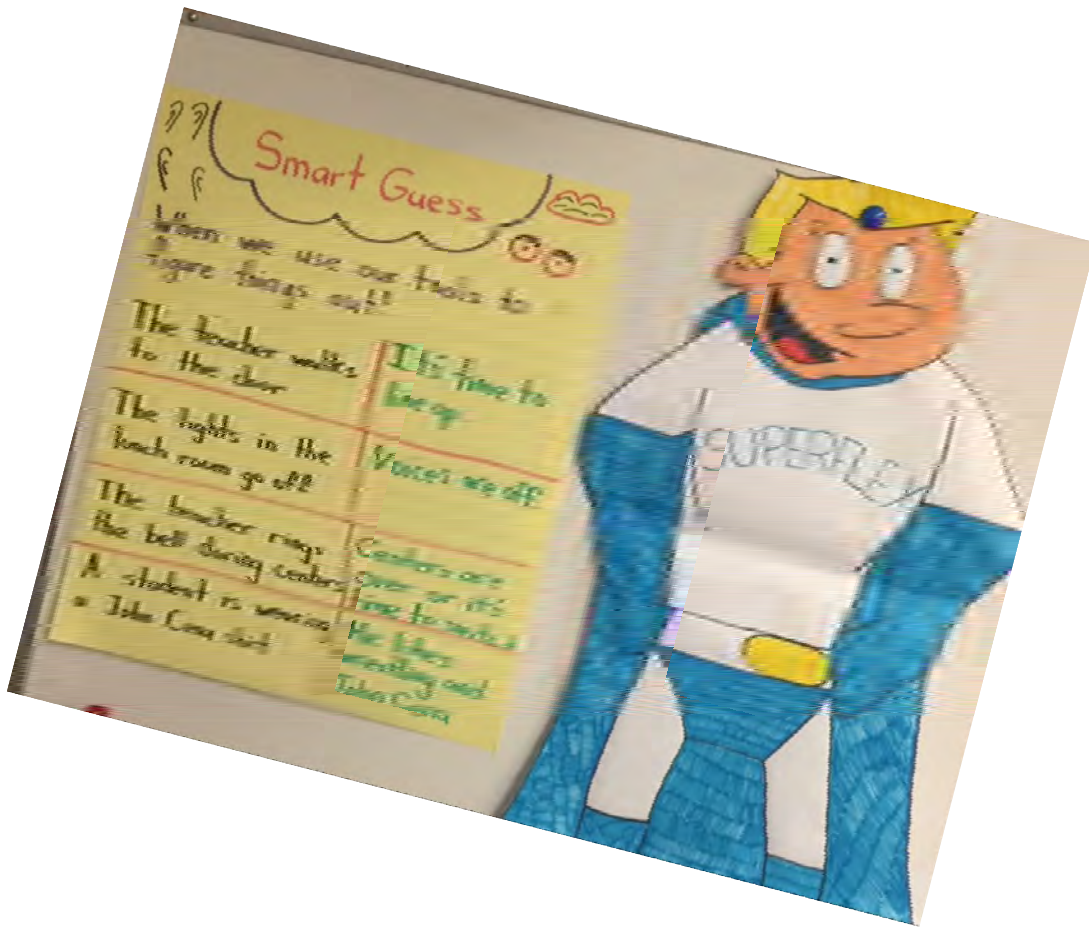 Smart Guess
When we use our tools to
figure things out!
The teacher walks
to the door
It's time to
line up
The lights in the
lunch room go off
Voices are off
The teacher rings
the bell during centers
Centers are
over or it's
time to switch
A student is wearing
a John Cena shirt
He likes
wrestling and
John Cena
SUPERFLEX